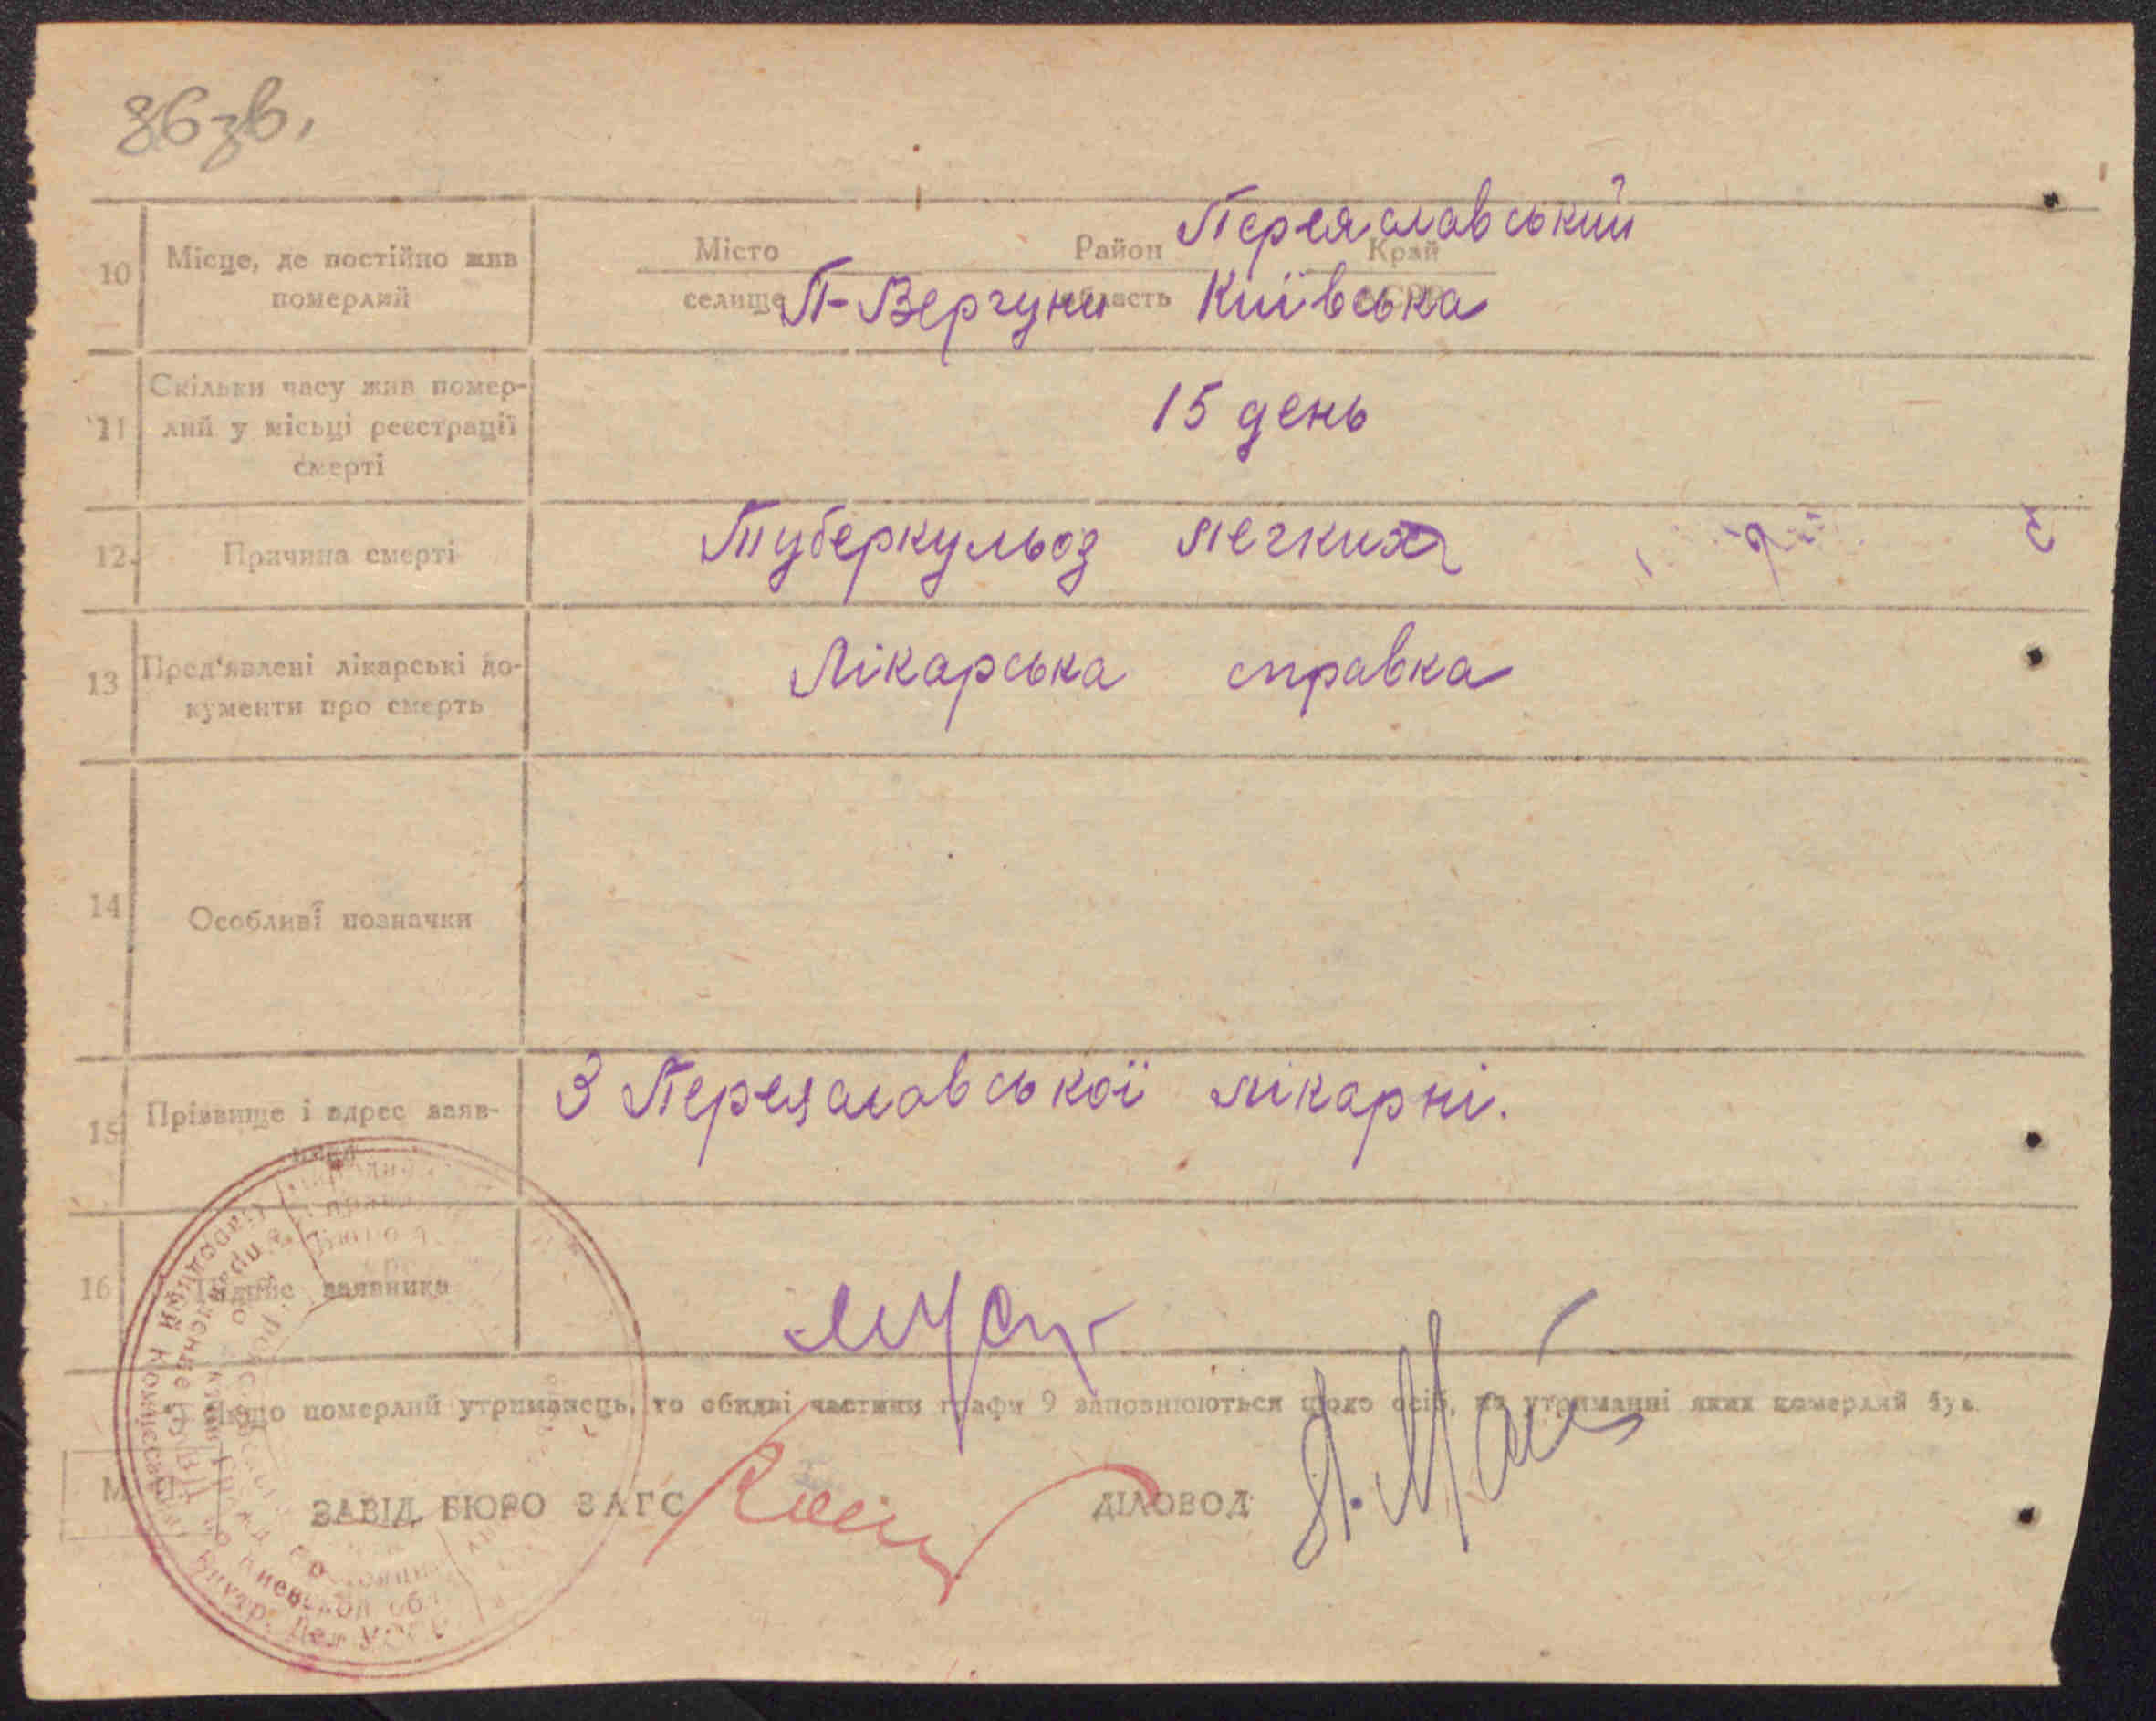 86зв.
10 Місце, де постійно жив Місто Район Переяславський Край
померлий селище П-Вергуни область Київська
Скільки часу жив помер-
11 лий у місьці реєстрації 15 день
смерті
12 Причина смерті Туберкульоз легких
13 Пред'явлені лікарські до- Лікарська справка
кументи про смерть
14 Особливі позначки
15 Прізвище і адрес заяв- З Переяславської лікарні.
ника
16 Підпис заявника
Якщо померлий утриманець, то обидві частини графи 9 заповнюються щодо осіб, на утриманні яких померлий був.
М. П. ЗАВІД. БЮРО ЗАГС ДІЛОВОД
Народный Комиссариат Внутр. Дел УССР